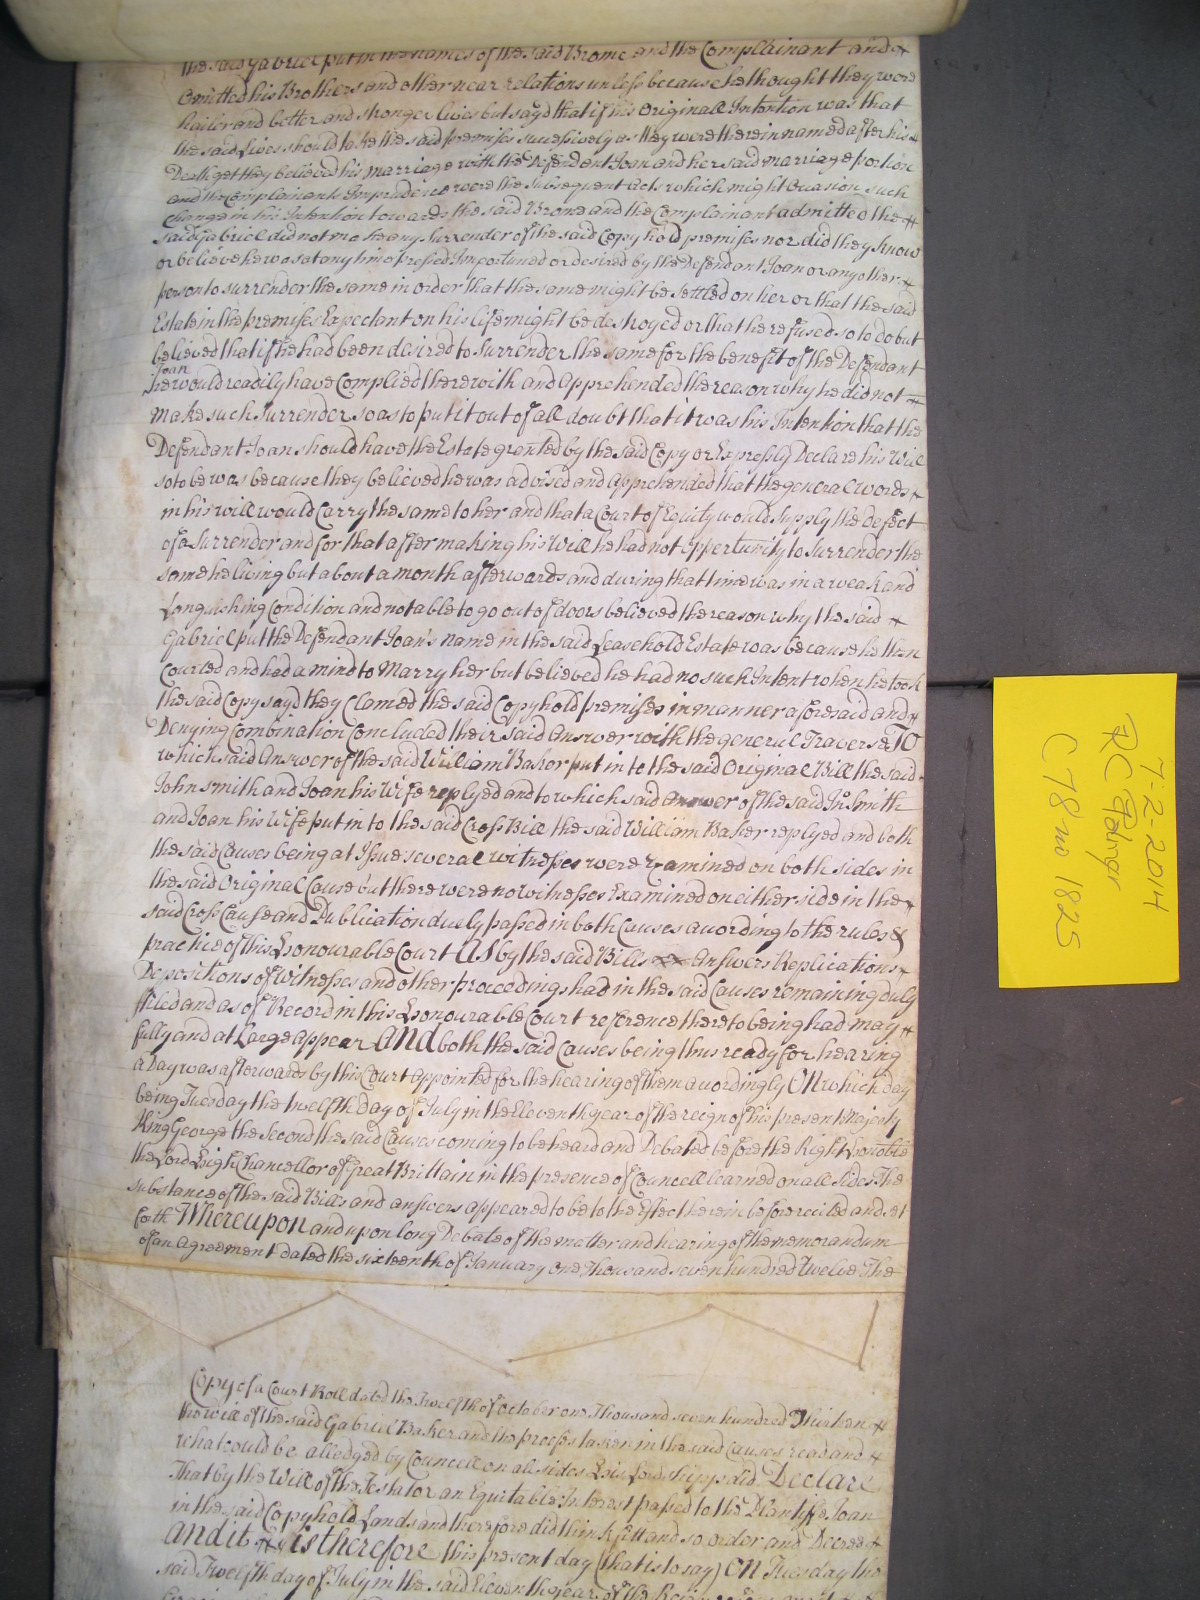 the said Gabriel put in the names of the said Brome and the Complainant and
omitted his Brothers and other near relations unless because he thought they were
hailer and better and stronger lives but sayd that if his Originall Intention was that
the said Lives should take the said premises successively as they were therein named after his
Death yet they believed his marriage with the Defendant Joan and her said marriage portion
and the Complainants Imprudence were the subsequent acts which might occasion such
change in his Intention towards the said Brome and the Complainant admitted the
said Gabriel did not make any Surrender of the said Copyhold premises nor did they know
or believe he was at any time pressed Importuned or desired by the Defendant Joan or any other
person to surrender the same in order that the same might be settled on her or that the said
Estate in the premises Expectant on his life might be destroyed or that he refused so to do but
believed that if he had been desired to Surrender the same for the benefit of the Defendant
Joan
he would readily have Complied therewith and Apprehended the reason why he did not
make such Surrender so as to put it out of all doubt that it was his Intention that the
Defendant Joan should have the Estate granted by the said Copy or Expressly Declare his Will
so to be was because they believed he was advised and apprehended that the general words
in his will would Carry the same to her and that a Court of Equity would Supply the defect
of a Surrender and for that after making his Will he had not oppertunity to Surrender the
same he living but about a month afterwards and during that time was in a weak and
Languishing Condition and not able to go out of doors believed the reason why the said
Gabriel put the Defendant Joan's name in the said Leasehold Estate was because he then
Courted and had a mind to Marry her but believed he had no such Intent when he took
the said Copy sayd they Claimed the said Copyhold premises in manner aforesaid and
Denying Combination Concluded their said Answer with the general Traverse TO
which said Answer of the said William Baker put in to the said Original Bill the said
John Smith and Joan his Wife replyed and to which said Answer of the said Jn Smith
and Joan his Wife put in to the said Cross Bill the said William Baker replyed and both
the said Causes being at Issue several witnesses were Examined on both sides in
the said Original Cause but there were no witnesses Examined on either side in the
said Cross Cause and Publication duely passed in both Causes according to the rules &
practice of this Honourable Court AS by the said Bills Answers Replications
Depositions of Witnesses and other proceedings had in the said Causes remaining duly
filed and as of Record in this Honourable Court reference thereto being had may
fully and at Large appear AND both the said Causes being thus ready for hearing
a Day was afterwards by this Court appointed for the hearing of them accordingly ON which day
being Tuesday the twelfth Day of July in the Eleventh year of the reign of his present Majesty
King George the Second the said Causes coming to be heard and Debated before the Right Honoble
the Lord High Chancellor of Great Brittain in the presence of Councell learned on all sides The
substance of the said Bills and answers appeared to be to the Effect herein before recited and set
forth Whereupon and upon long Debate of the matter and hearing of the memorandum
of an Agreement dated the sixteenth of January one thousand seven hundred twelve The
Copy of a Court Roll dated the Twelfth of October one Thousand seven hundred Thirteen
the will of the said Gabriel Baker and the proofs taken in the said Causes read and
what could be alledged by Councell on all sides His Lordshipp did Declare
That by the Will of the Testator an Equitable Interest passed to the Plantiffe Joan
in the said Copyhold Lands and therefore did think fitt and so order and Decree
AND it is therefore this present day (that is to say) ON Tuesday the
said Twelfth day of July in the said Eleventh year of the Reign
7-2-2014
RC Palmer
C 78 no 1825